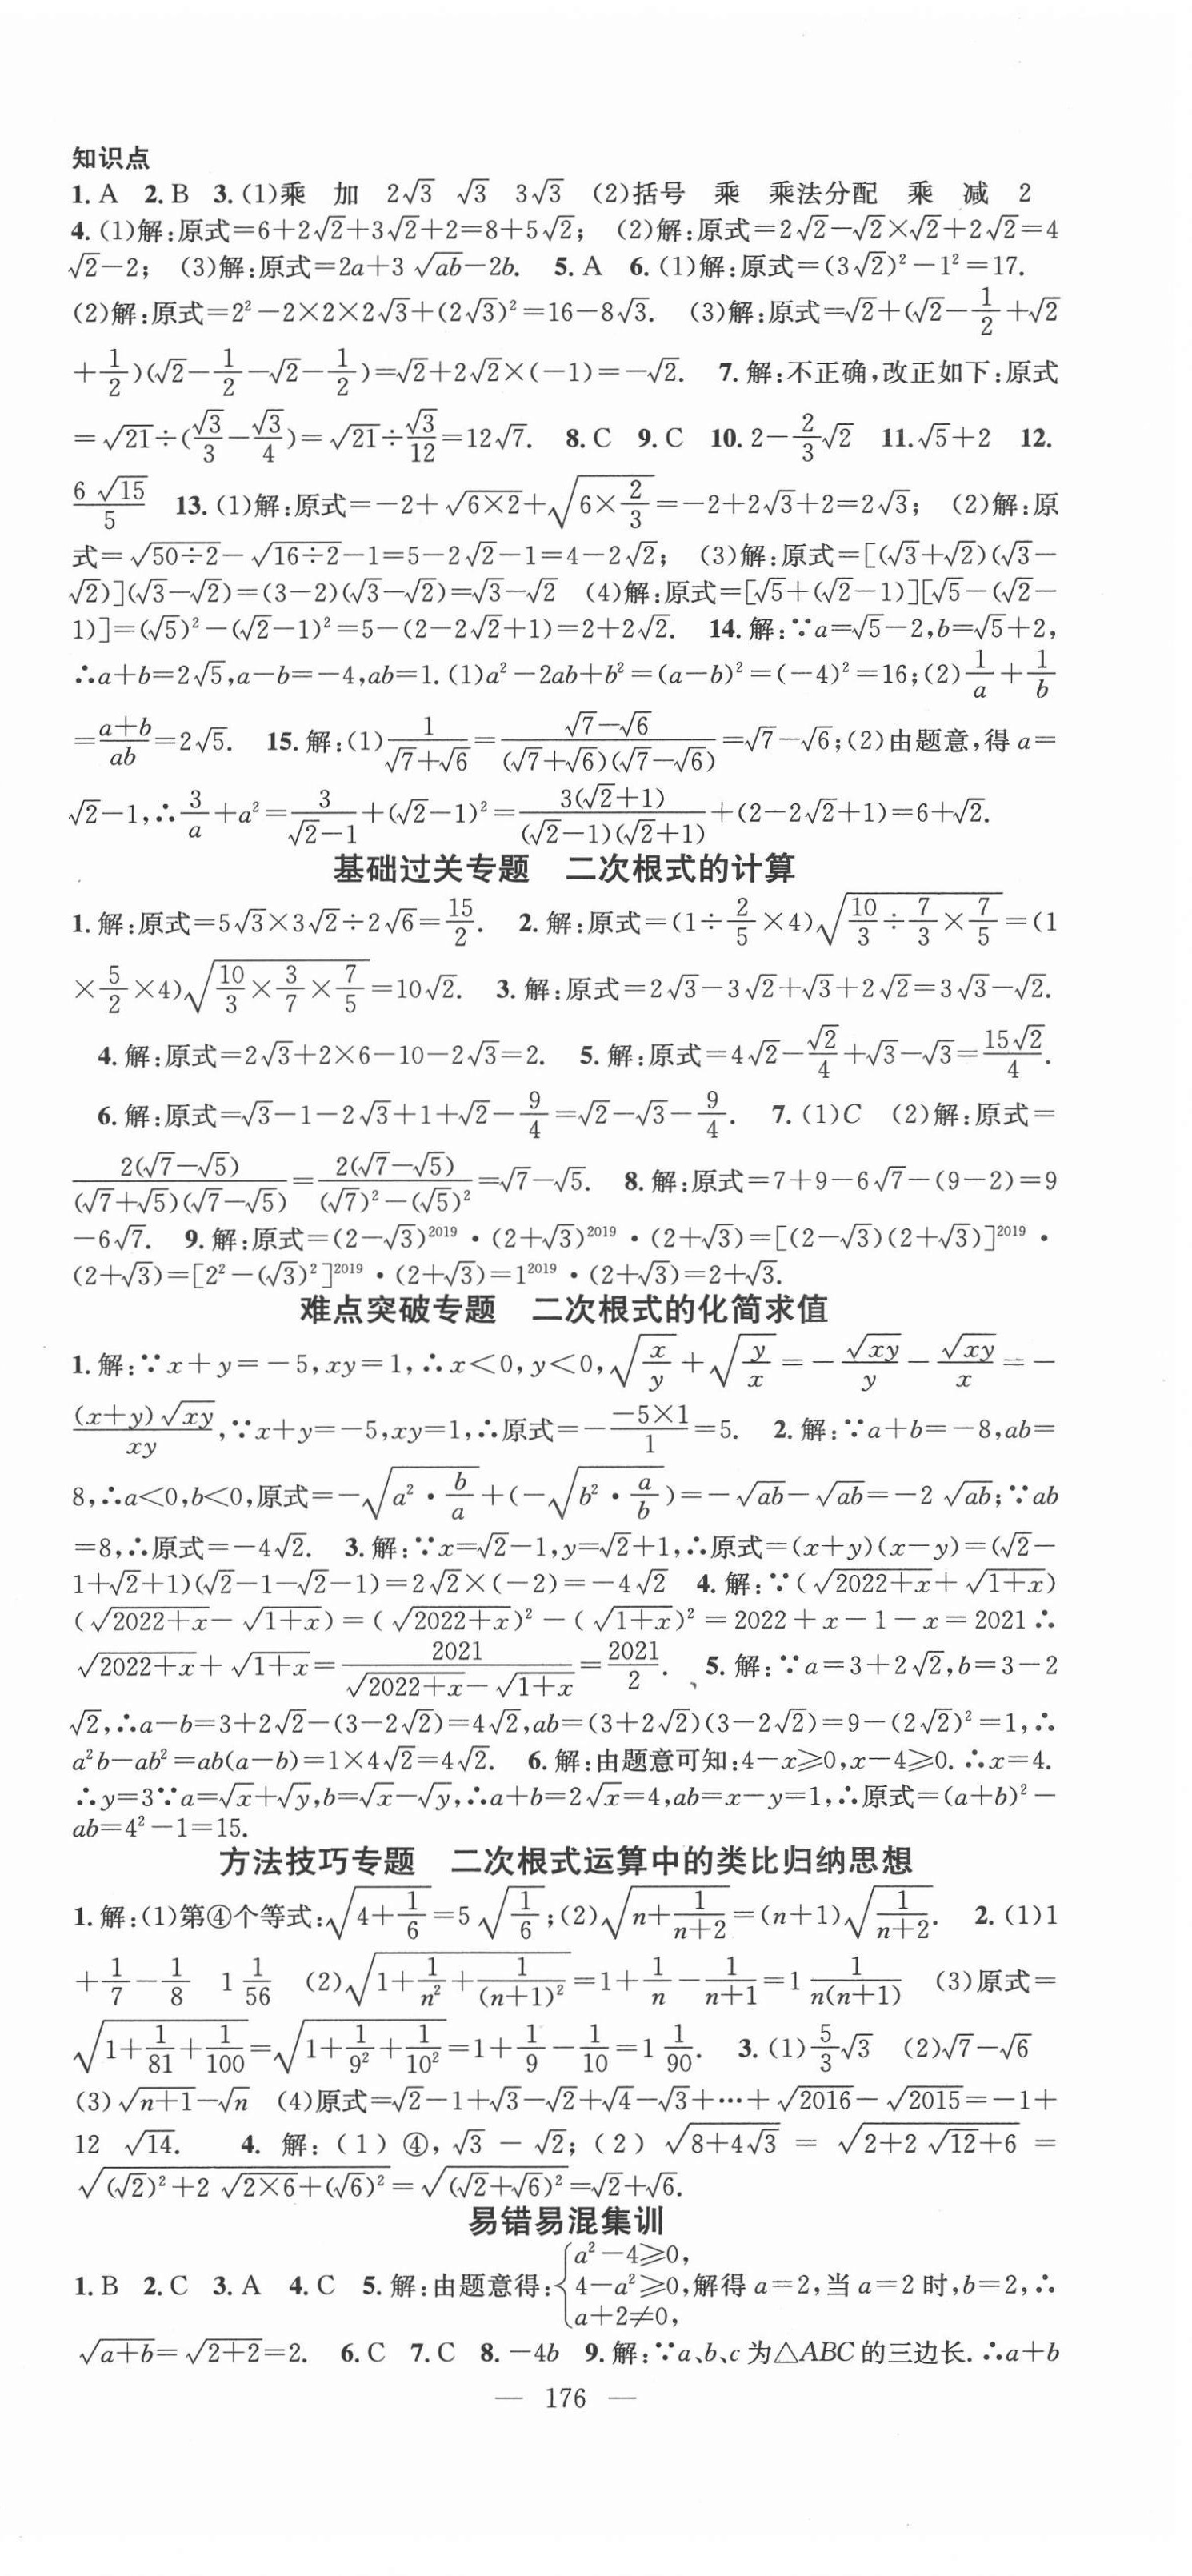 知识点
1. A 2. B 3. (1)乘 加 2√3 √3 3√3 (2)括号 乘 乘法分配 乘 减 2
4. (1)解:原式=6+2√2+3√2+2=8+5√2; (2)解:原式=2√2-√2×√2+2√2=4
√2-2; (3)解:原式=2a+3√(ab)-2b. 5. A 6. (1)解:原式=(3√2)²-1²=17.
(2)解:原式=2²-2×2×2√3+(2√3)²=16-8√3. (3)解:原式=√2+(√2-1/2+√2
+1/2)(√2-1/2-√2-1/2)=√2+2√2×(-1)=-√2. 7. 解:不正确,改正如下:原式
=√21÷(√3/3-√3/4)=√21÷√3/12=12√7. 8. C 9. C 10. 2-2/3√2 11. √5+2 12.
6√15/5 13. (1)解:原式=-2+√(6×2)+√(6×2/3)=-2+2√3+2=2√3; (2)解:原
式=√(50÷2)-√(16÷2)-1=5-2√2-1=4-2√2; (3)解:原式=[(√3+√2)(√3-
√2)](√3-√2)=(3-2)(√3-√2)=√3-√2 (4)解:原式=[√5+(√2-1)][√5-(√2-
1)]=(√5)²-(√2-1)²=5-(2-2√2+1)=2+2√2. 14. 解:∵a=√5-2,b=√5+2,
∴a+b=2√5,a-b=-4,ab=1. (1)a²-2ab+b²=(a-b)²=(-4)²=16;(2)1/a+1/b
=(a+b)/ab=2√5. 15. 解:(1)1/(√7+√6)=(√7-√6)/((√7+√6)(√7-√6))=√7-√6;(2)由题意,得a=
√2-1,∴3/a+a²=3/(√2-1)+(√2-1)²=3(√2+1)/((√2-1)(√2+1))+(2-2√2+1)=6+√2.
基础过关专题 二次根式的计算
1. 解:原式=5√3×3√2÷2√6=15/2. 2. 解:原式=(1÷2/5×4)√(10/3÷7/3×7/5)=(1
×5/2×4)√(10/3×3/7×7/5)=10√2. 3. 解:原式=2√3-3√2+√3+2√2=3√3-√2.
4. 解:原式=2√3+2×6-10-2√3=2. 5. 解:原式=4√2-√2/4+√3-√3=15√2/4.
6. 解:原式=√3-1-2√3+1+√2-9/4=√2-√3-9/4. 7. (1)C (2)解:原式=
2(√7-√5)/((√7+√5)(√7-√5))=2(√7-√5)/((√7)²-(√5)²)=√7-√5. 8. 解:原式=7+9-6√7-(9-2)=9
-6√7. 9. 解:原式=(2-√3)²⁰¹⁹·(2+√3)²⁰¹⁹·(2+√3)=[(2-√3)(2+√3)]²⁰¹⁹·
(2+√3)=[2²-(√3)²]²⁰¹⁹·(2+√3)=1²⁰¹⁹·(2+√3)=2+√3.
难点突破专题 二次根式的化简求值
1. 解:∵x+y=-5,xy=1,∴x<0,y<0,√(x/y)+√(y/x)=-√(xy)/y-√(xy)/x=-
(x+y)√(xy)/xy,∵x+y=-5,xy=1,∴原式=-(-5×1)/1=5. 2. 解:∵a+b=-8,ab=
8,∴a<0,b<0,原式=-√(a²·b/a)+(-√(b²·a/b))=-√(ab)-√(ab)=-2√(ab);∵ab
=8,∴原式=-4√2. 3. 解:∵x=√2-1,y=√2+1,∴原式=(x+y)(x-y)=(√2-
1+√2+1)(√2-1-√2-1)=2√2×(-2)=-4√2 4. 解:∵(√(2022+x)+√(1+x))
(√(2022+x)-√(1+x))=(√(2022+x))²-(√(1+x))²=2022+x-1-x=2021∴
√(2022+x)+√(1+x)=2021/(√(2022+x)-√(1+x))=2021/2. 5. 解:∵a=3+2√2,b=3-2
√2,∴a-b=3+2√2-(3-2√2)=4√2,ab=(3+2√2)(3-2√2)=9-(2√2)²=1,∴
a²b-ab²=ab(a-b)=1×4√2=4√2. 6. 解:由题意可知:4-x≥0,x-4≥0.∴x=4.
∴y=3∵a=√x+√y,b=√x-√y,∴a+b=2√x=4,ab=x-y=1,∴原式=(a+b)²-
ab=4²-1=15.
方法技巧专题 二次根式运算中的类比归纳思想
1. 解:(1)第④个等式:√(4+1/6)=5√(1/6);(2)√(n+1/(n+2))=(n+1)√(1/(n+2)). 2. (1)1
+1/7-1/8 1 1/56 (2)√(1+1/n²+1/(n+1)²)=1+1/n-1/(n+1)=1 1/(n(n+1)) (3)原式=
√(1+1/81+1/100)=√(1+1/9²+1/10²)=1+1/9-1/10=1 1/90. 3. (1)5/3√3 (2)√7-√6
(3)√(n+1)-√n (4)原式=√2-1+√3-√2+√4-√3+…+√2016-√2015=-1+
12√14. 4. 解:(1)④,√3-√2;(2)√(8+4√3)=√(2+2√12+6)=
√((√2)²+2√(2×6)+(√6)²)=√((√2+√6)²)=√2+√6.
易错易混集训
1. B 2. C 3. A 4. C 5. 解:由题意得:{a²-4≥0, 4-a²≥0, a+2≠0,解得a=2,当a=2时,b=2,∴
√(a+b)=√(2+2)=2. 6. C 7. C 8. -4b 9. 解:∵a、b、c为△ABC的三边长.∴a+b
— 176 —